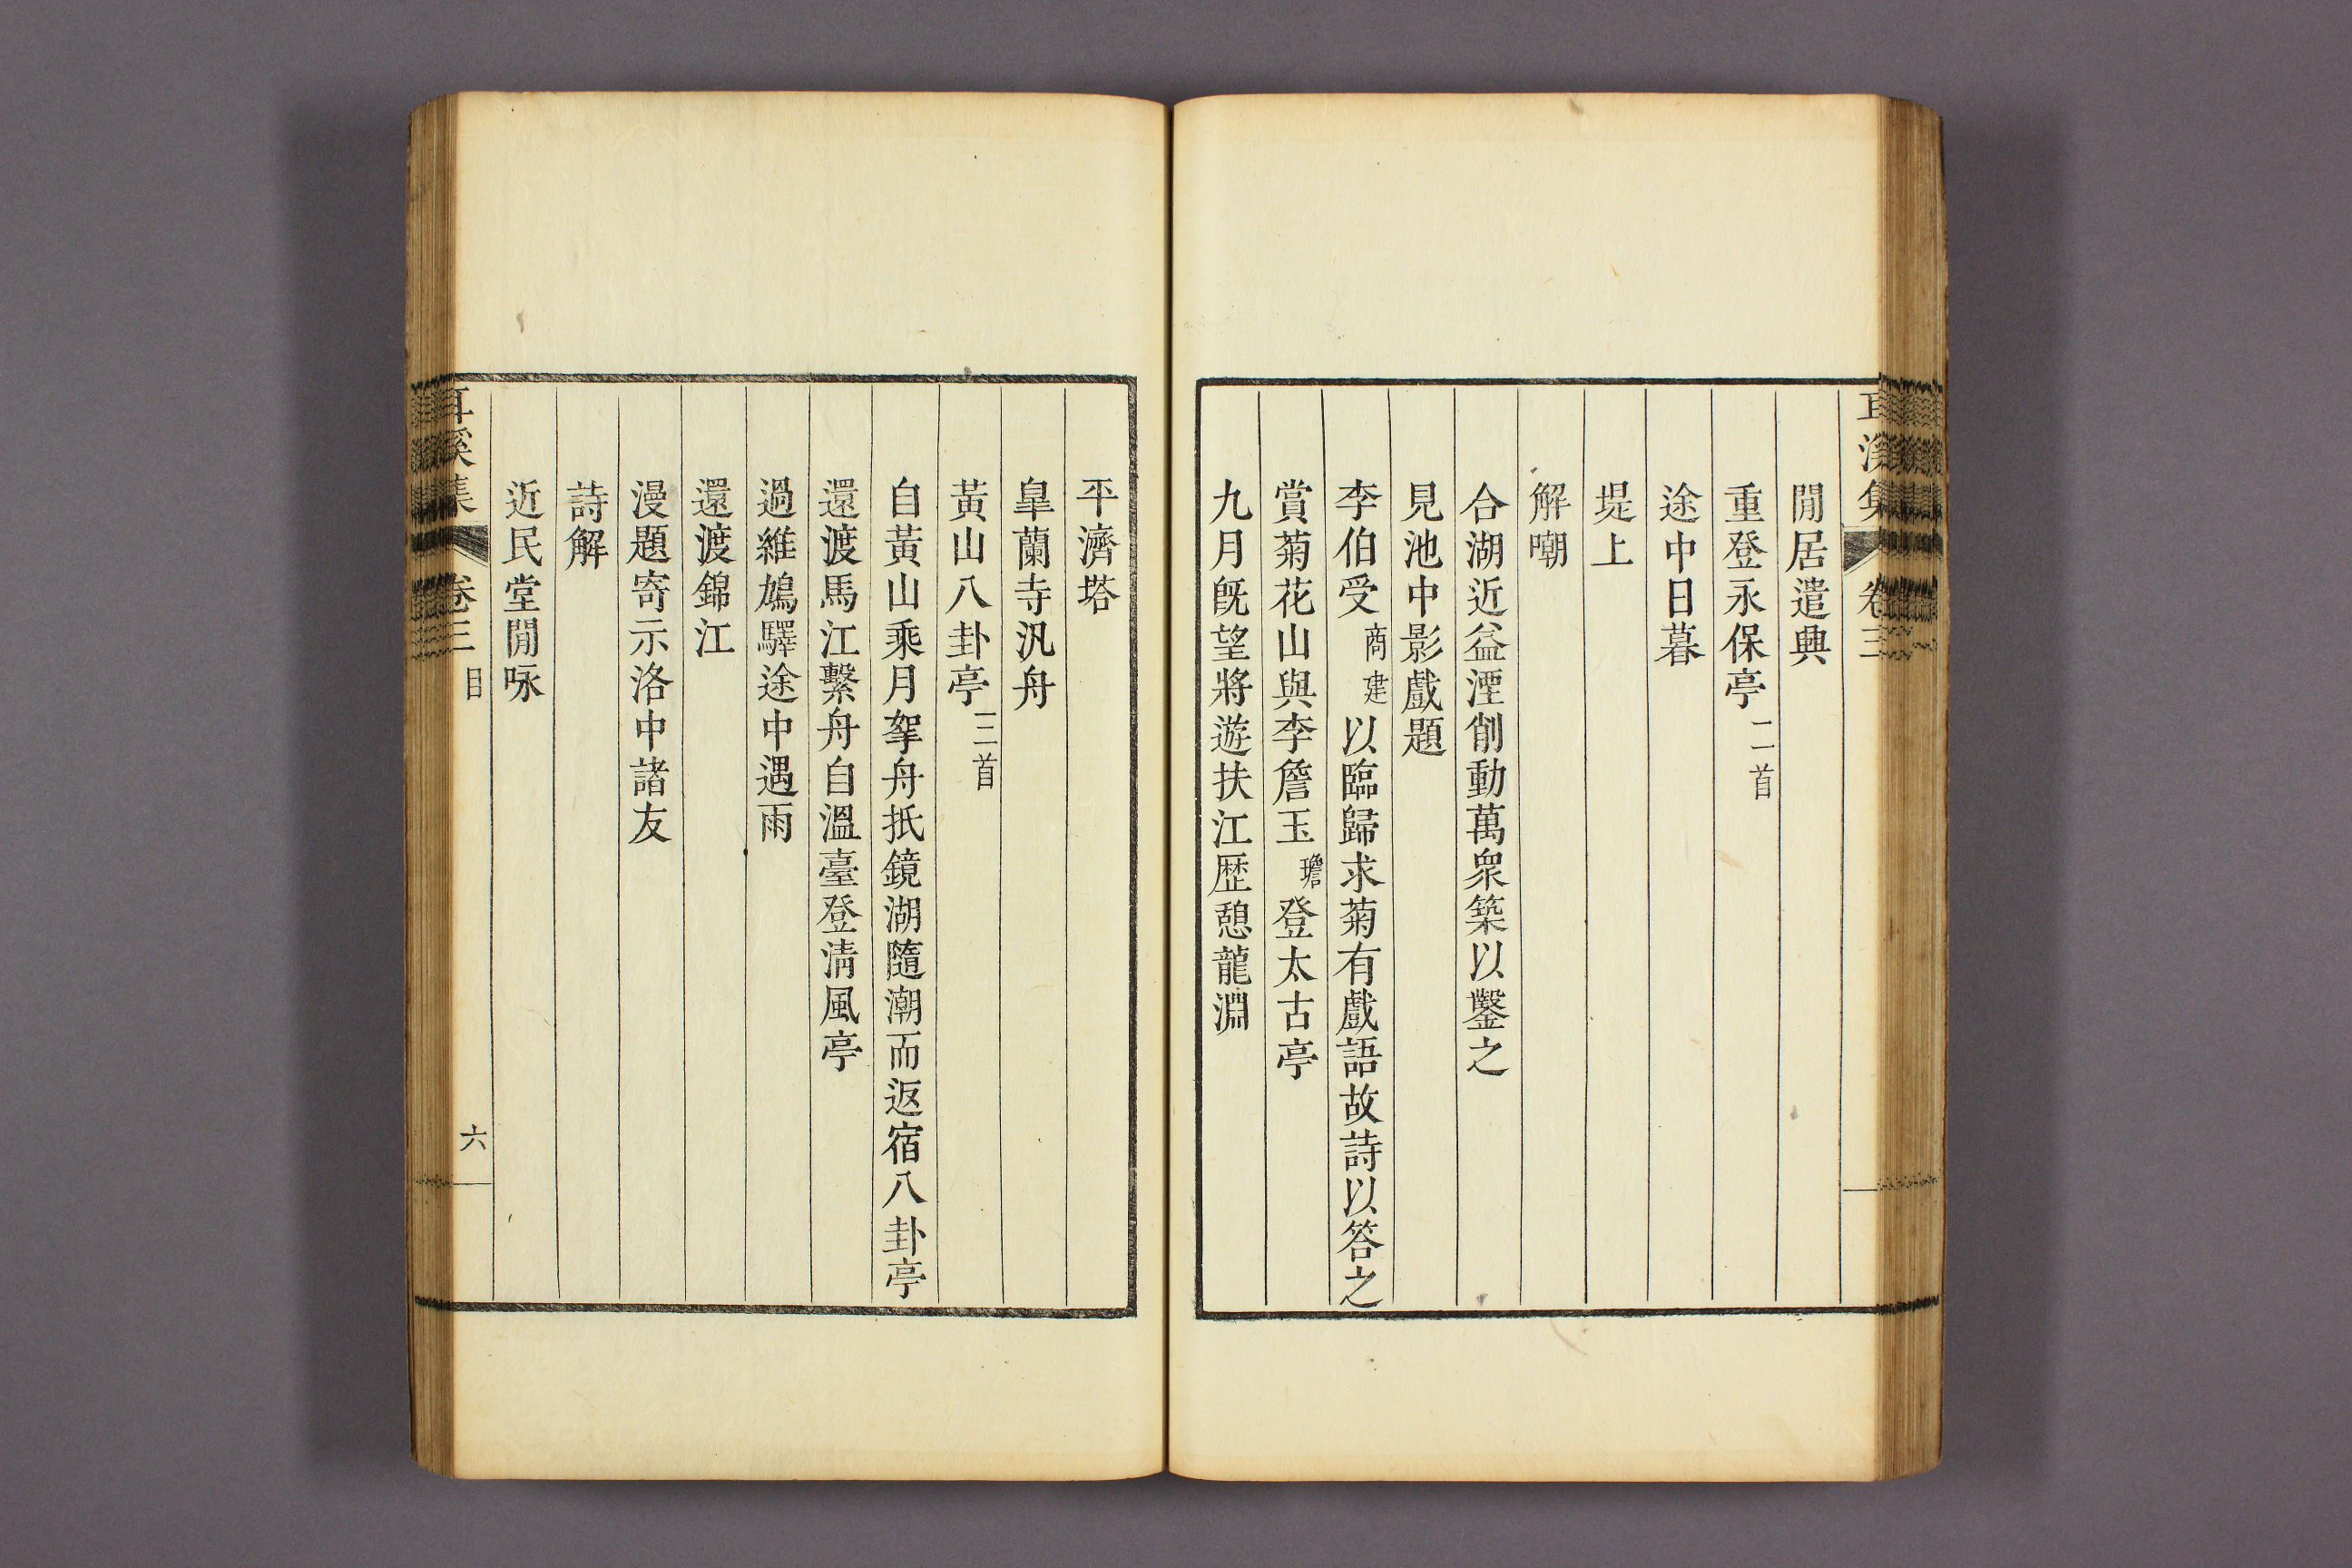 耳溪集 卷三
閒居遣興
重登永保亭 二首
途中日暮
堤上
解嘲
合湖近益湮削動萬衆築以鑿之
見池中影戲題
李伯受 商建 以臨歸求菊有戲語故詩以答之
賞菊花山與李詹玉 瓚 登太古亭
九月旣望將遊扶江歷憩龍淵
平濟塔
皐蘭寺汎舟
黃山八卦亭 三首
自黃山乘月挐舟抵鏡湖隨潮而返宿八卦亭
還渡馬江繫舟自溫臺登淸風亭
過維鳩驛途中遇雨
還渡錦江
漫題寄示洛中諸友
詩解
近民堂閒咏
耳溪集 卷三 目 六